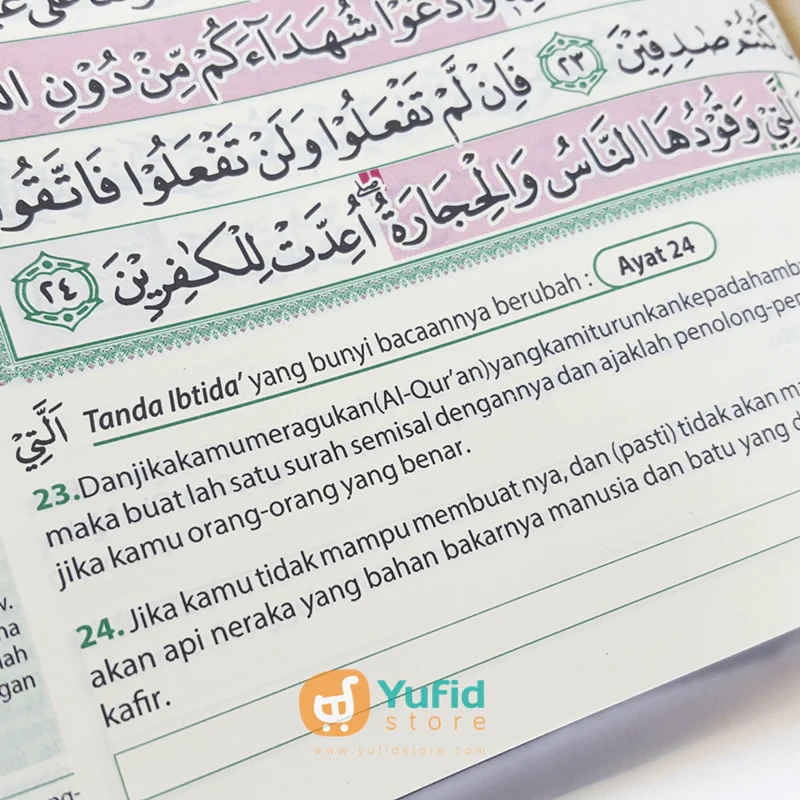 وَادْعُوْا شُهَدَاۤءَكُمْ مِّنْ دُوْنِ
كُنْتُمْ صٰدِقِيْنَ ٢٣ فَاِنْ لَّمْ تَفْعَلُوْا وَلَنْ تَفْعَلُوْا فَاتَّقُوا
الَّتِيْ وَقُوْدُهَا النَّاسُ وَالْحِجَارَةُ ۖ اُعِدَّتْ لِلْكٰفِرِيْنَ ٢٤
Tanda Ibtida' yang bunyi bacaannya berubah : Ayat 24
اَلَّتِيْ
23.Danjikakamumeragukan(Al-Qur'an)yangkamiturunkankepadahamba
maka buat lah satu surah semisal dengannya dan ajaklah penolong-pe
jika kamu orang-orang yang benar.
24. Jika kamu tidak mampu membuat nya, dan (pasti) tidak akan m
akan api neraka yang bahan bakarnya manusia dan batu yang d
kafir.
v.
na
lah
gan
Yufid
store
www.yufidstore.com